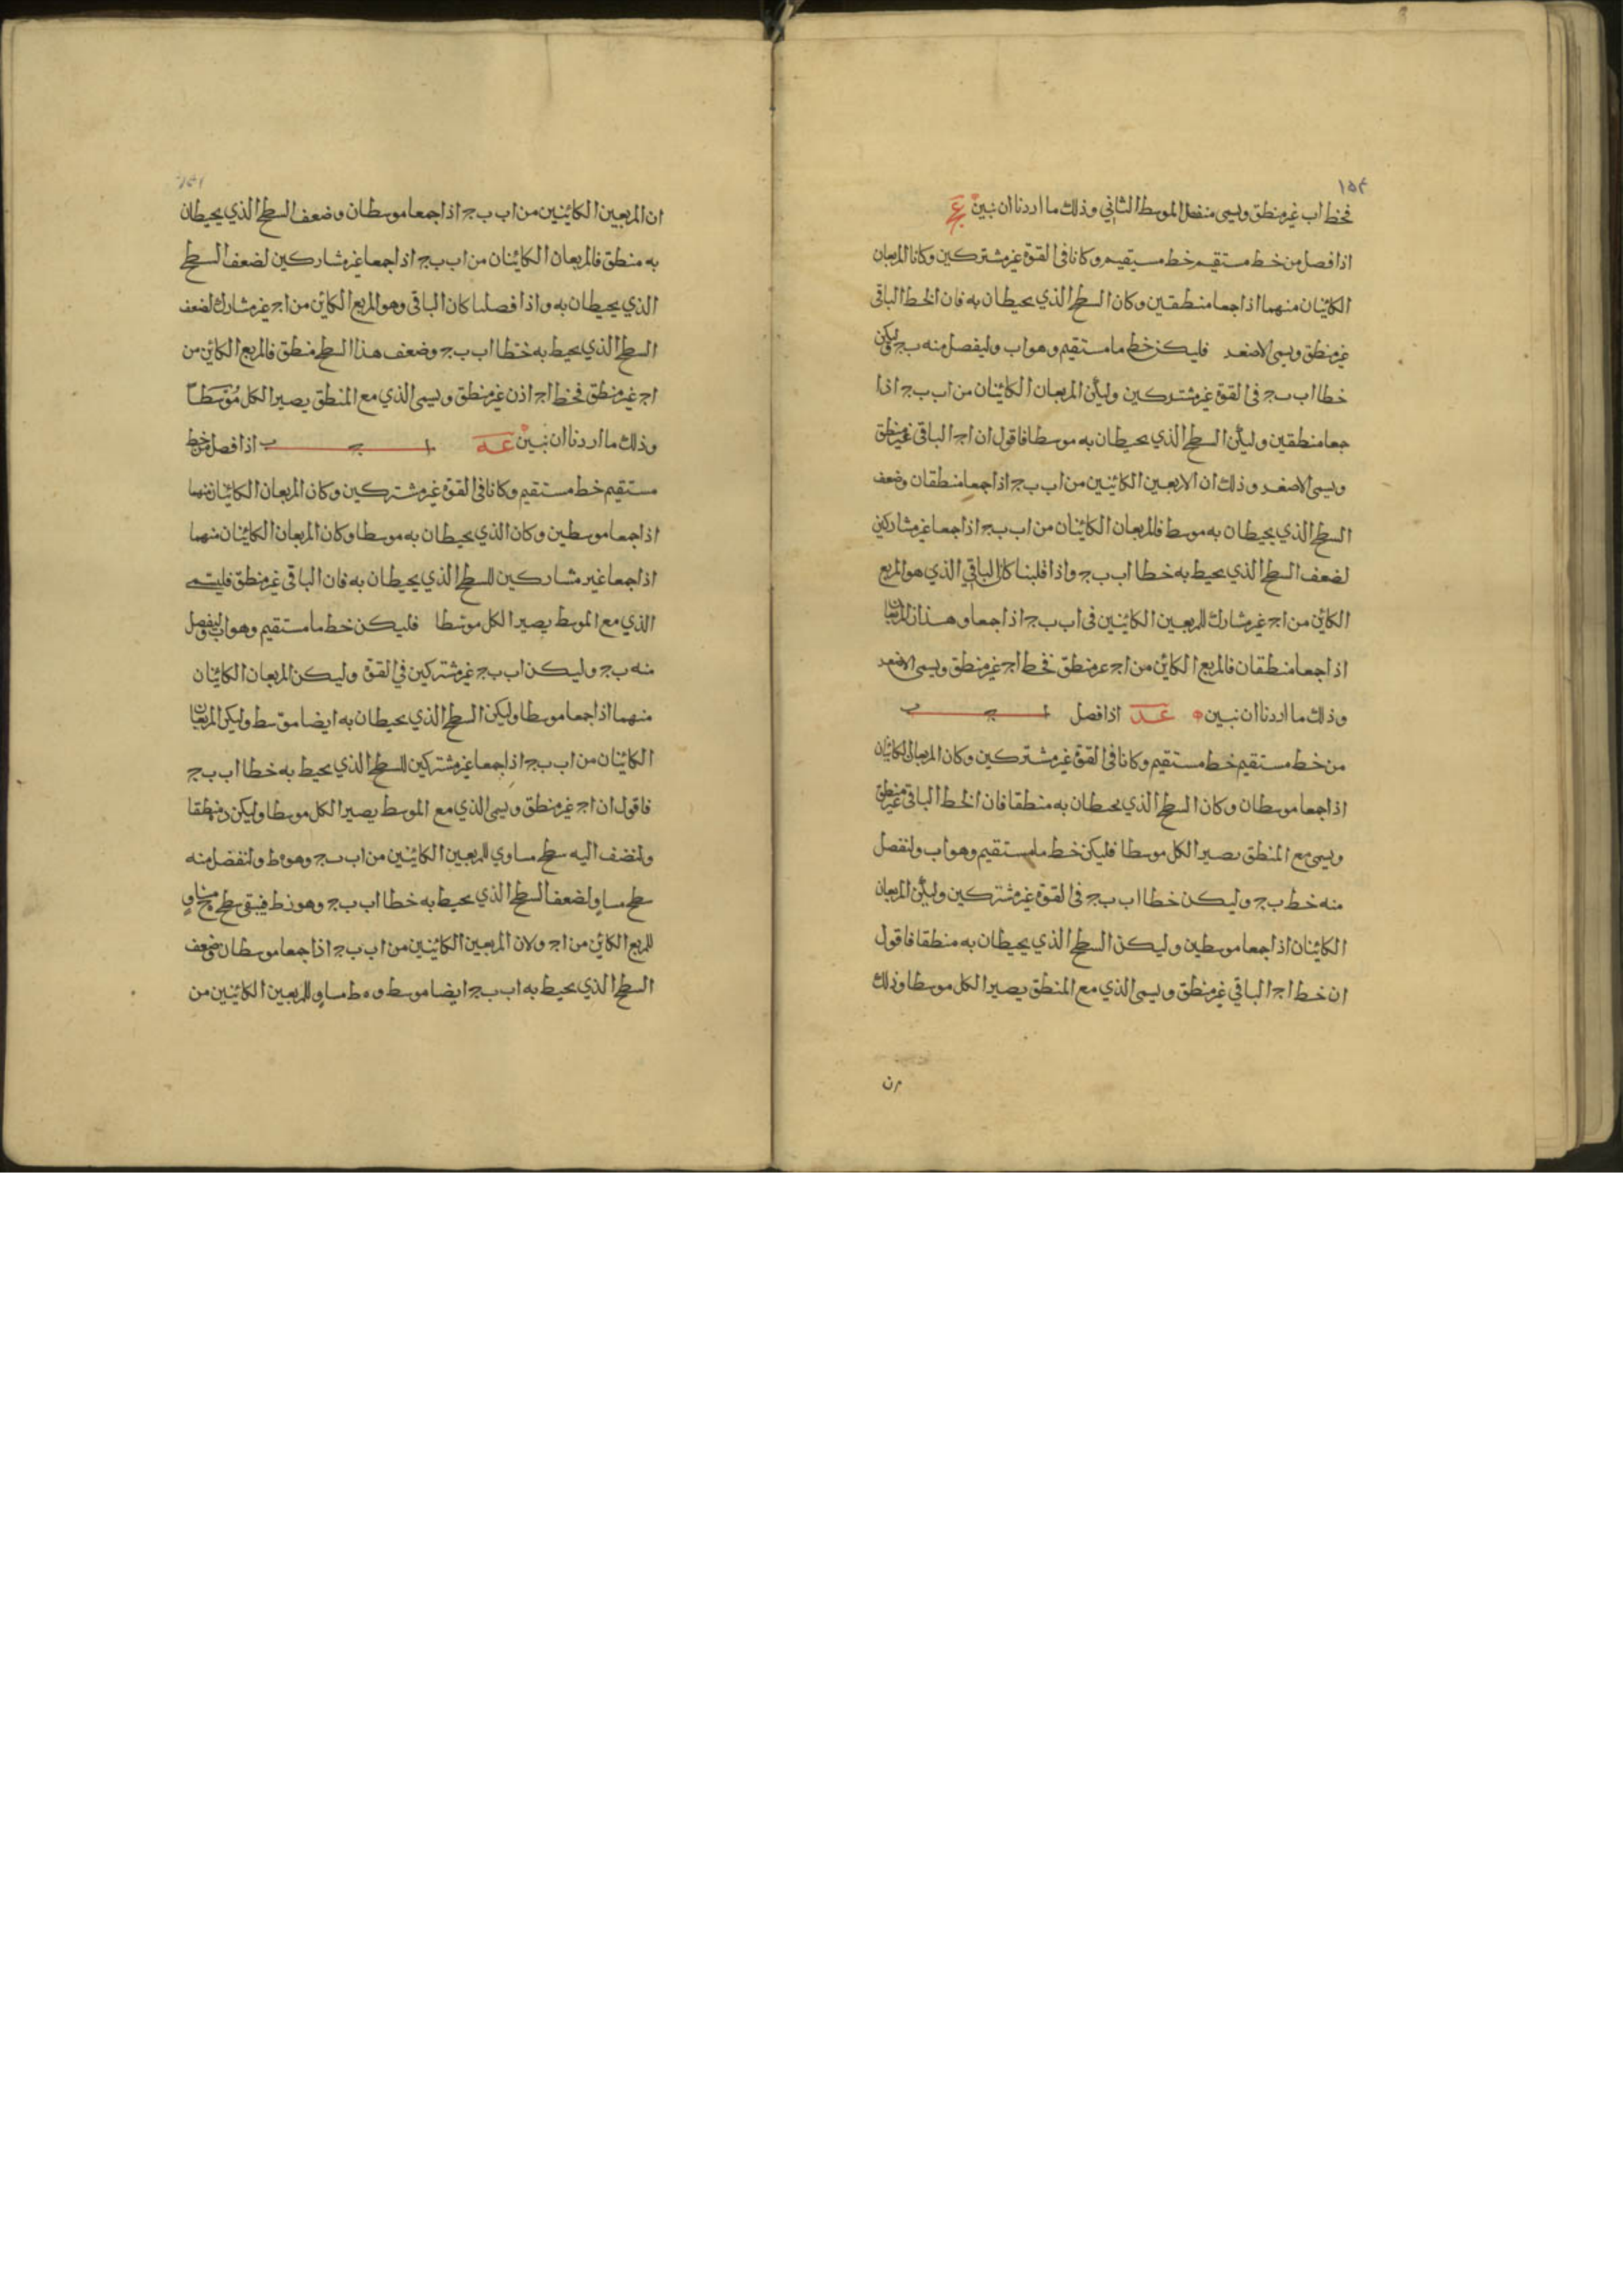 ١٥٤
فخط اب غير منطق ويسمى منفصل الموسط الثاني وذلك ما اردنا ان نبين عج
اذا فصل من خط مستقيم خط مستقيم وكانا في القوة غير مشتركين وكانا المربعان
الكائنان منهما اذا جمعا منطقين وكان السطح الذي يحيطان به فان الخط الباقي
غير منطق ويسمى الاصغر فليكن خط ما مستقيم وهو اب وليفصل منه بج وليكن
خطا اب بج في القوة غير مشتركين وليكن المربعان الكائنان من اب بج اذا
جمعا منطقين وليكن السطح الذي يحيطان به موسطا فاقول ان اج الباقي غير منطق
ويسمى الاصغر وذلك ان الاربعين الكائنين من اب بج اذا جمعا منطقان وضعف
السطح الذي يحيطان به موسط فالمربعان الكائنان من اب بج اذا جمعا غير مشاركين
لضعف السطح الذي يحيط به خطا اب بج واذا قلبنا كان الباقي الذي هو المربع
الكائن من اج غير مشارك للمربعين الكائنين في اب بج اذا جمعا وهذان المربعان
اذا جمعا منطقان فالمربع الكائن من اج غير منطق فخط اج غير منطق ويسمى الاصغر
وذلك ما اردنا ان نبين عد اذا فصل ا ج ب
من خط مستقيم خط مستقيم وكانا في القوة غير مشتركين وكان المربعان الكائنان
اذا جمعا موسطان وكان السطح الذي يحيطان به منطقا فان الخط الباقي غير منطق
ويسمى مع المنطق يصير الكل موسطا فليكن خط ما مستقيم وهو اب ولنفصل
منه خط بج وليكن خطا اب بج في القوة غير مشتركين وليكن المربعان
الكائنان اذا جمعا موسطين وليكن السطح الذي يحيطان به منطقا فاقول
ان خط اج الباقي غير منطق ويسمى الذي مع المنطق يصير الكل موسطا وذلك
ان
ان المربعين الكائنين من اب بج اذا جمعا موسطان وضعف السطح الذي يحيطان
به منطق فالمربعان الكائنان من اب بج اذا جمعا غير مشاركين لضعف السطح
الذي يحيطان به واذا فصلنا كان الباقي وهو المربع الكائن من اج غير مشارك لضعف
السطح الذي يحيط به خطا اب بج وضعف هذا السطح منطق فالمربع الكائن من
اج غير منطق فخط اج اذن غير منطق ويسمى الذي مع المنطق يصير الكل مُوَسَّطاً
وذلك ما اردنا ان نبين عه ا ج ب اذا فصل من خط
مستقيم خط مستقيم وكانا في القوة غير مشتركين وكان المربعان الكائنان منهما
اذا جمعا موسطين وكان الذي يحيطان به موسطا وكان المربعان الكائنان منهما
اذا جمعا غير مشاركين للسطح الذي يحيطان به فان الباقي غير منطق فليسم
الذي مع الموسط يصير الكل موسطا فليكن خط ما مستقيم وهو اب وليفصل
منه بج وليكن اب بج غير مشتركين في القوة وليكن المربعان الكائنان
منهما اذا جمعا موسطا وليكن السطح الذي يحيطان به ايضا موسط وليكن المربعان
الكائنان من اب بج اذا جمعا غير مشتركين للسطح الذي يحيط به خطا اب بج
فاقول ان اج غير منطق ويسمى الذي مع الموسط يصير الكل موسطا وليكن منطقا
ولنضف اليه سطح مساوي للمربعين الكائنين من اب بج وهو ه ط ولنفصل منه
سطح مساو لضعف السطح الذي يحيط به خطا اب بج وهو زط فيبقى سطح مساو
للمربع الكائن من اج ولان المربعين الكائنين من اب بج اذا جمعا موسطان ضعف
السطح الذي يحيط به اب بج ايضا موسط و ه ط مساو للمربعين الكائنين من